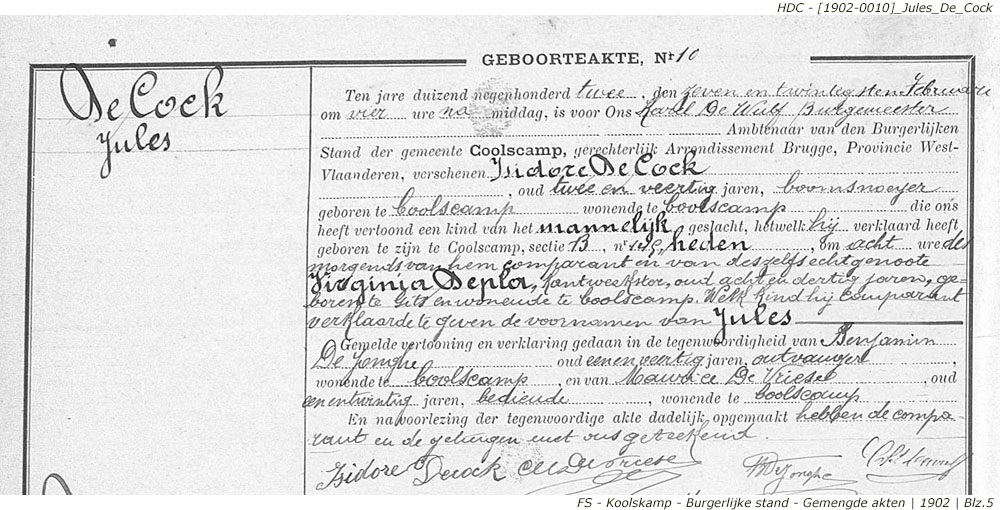 HDC - [1902-0010]_Jules_De_Cock
GEBOORTEAKTE, Nr 10
De Cock
Jules
Ten jare duizend negenhonderd twee den zeven en twintigsten Februari
om vier ure na middag, is voor Ons Karel De Wulf Burgemeester
Ambtenaar van den Burgerlijken
Stand der gemeente Coolscamp, gerechterlijk Arrondissement Brugge, Provincie West-
Vlaanderen, verschenen Isidore De Cock
, oud twee en veertig jaren, boomsnoeyer
geboren te Coolscamp wonende te Coolscamp die ons
heeft vertoond een kind van het mannelijk geslacht, hetwelk hij verklaard heeft
geboren te zijn te Coolscamp, sectie B nr heden, om acht ure des
morgends van hem comparant en van deszelfs echtgenoote
Virginia Depla, kantwerkster, oud acht en dertig jaren, ge-
boren te Gits en wonende te Coolscamp. Welk kind hij comparant
verklaarde te geven de voornamen van Jules
Gemelde vertooning en verklaring gedaan in de tegenwoordigheid van Benjamin
De Jonghe oud een en veertig jaren, ontvanger,
wonende te Coolscamp, en van Maurice De Vriese, oud
een en twintig jaren, bediende, wonende te Coolscamp
En na voorlezing der tegenwoordige akte dadelijk opgemaakt hebben de compa-
rant en de getuigen met ons geteekend.
Isidore Decock De Vriese B De Jonghe
FS - Koolskamp - Burgerlijke stand - Gemengde akten | 1902 | Blz.5